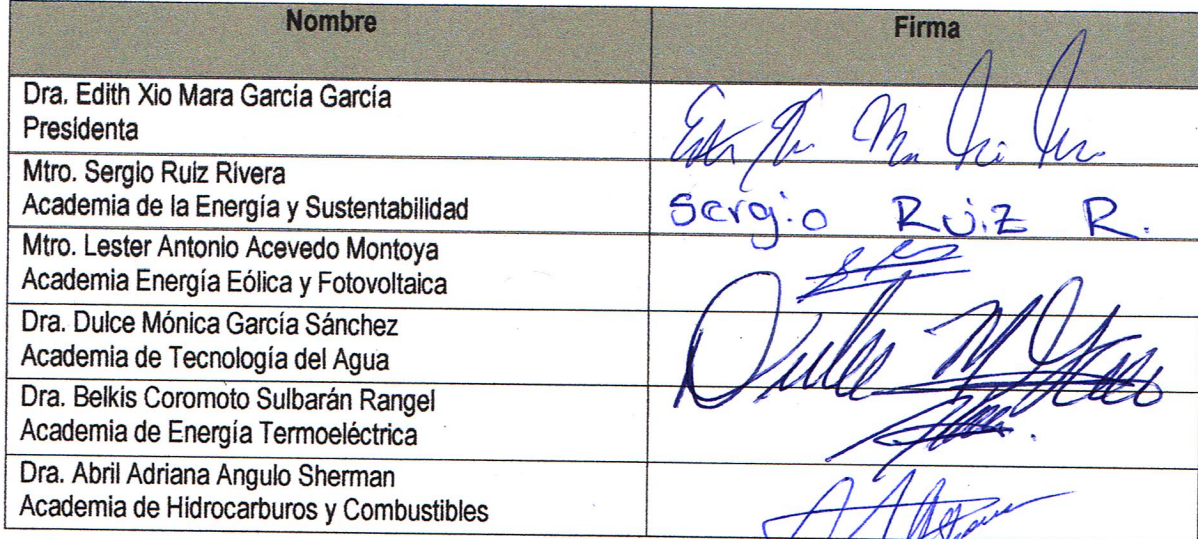 Nombre Firma
Dra. Edith Xio Mara García García
Presidenta
Mtro. Sergio Ruiz Rivera
Academia de la Energía y Sustentabilidad
Sergio Ruiz R.
Mtro. Lester Antonio Acevedo Montoya
Academia Energía Eólica y Fotovoltaica
Dra. Dulce Mónica García Sánchez
Academia de Tecnología del Agua
Dulce M
Dra. Belkis Coromoto Sulbarán Rangel
Academia de Energía Termoeléctrica
Dra. Abril Adriana Angulo Sherman
Academia de Hidrocarburos y Combustibles